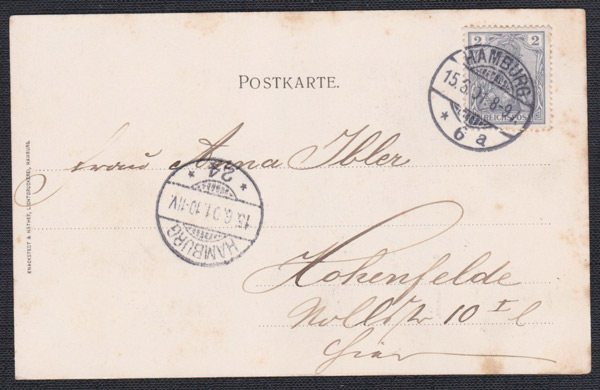 2 2
REICHSPOST
HAMBURG
15.6.01. 8-9V.
* 6 a
POSTKARTE.
Frau Anna Ibler
* 24 *
15.6.01.10-11V.
HAMBURG
Hohenfelde
10 I l
hier
KNACKSTEDT & NÄTHER, LICHTDRUCKEREI, HAMBURG.